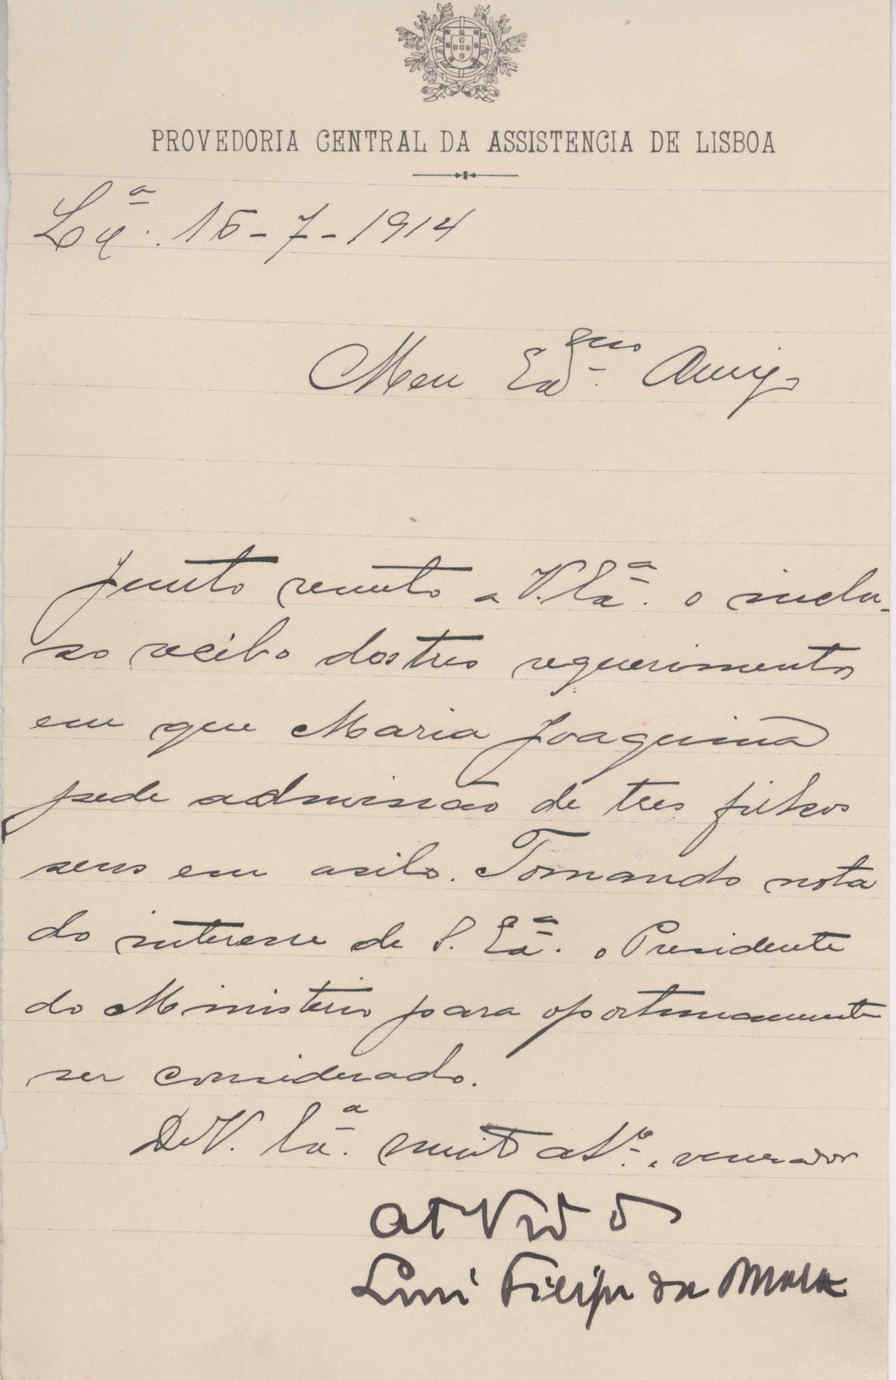 PROVEDORIA CENTRAL DA ASSISTENCIA DE LISBOA
Lxª. 15-7-1914
Meu Exmo. Amigo
Junto remeto a V. Exª. o inclu-
so recibo dos tres requerimentos
em que Maria Joaquina
pede admissão de tres filhos
seus em asilo. Tomando nota
do interesse de S. Exª. o Presidente
do Ministerio para oportunamente
ser considerado.
De V. Exª. muito atº. venerador
Luis Filipe da Mata